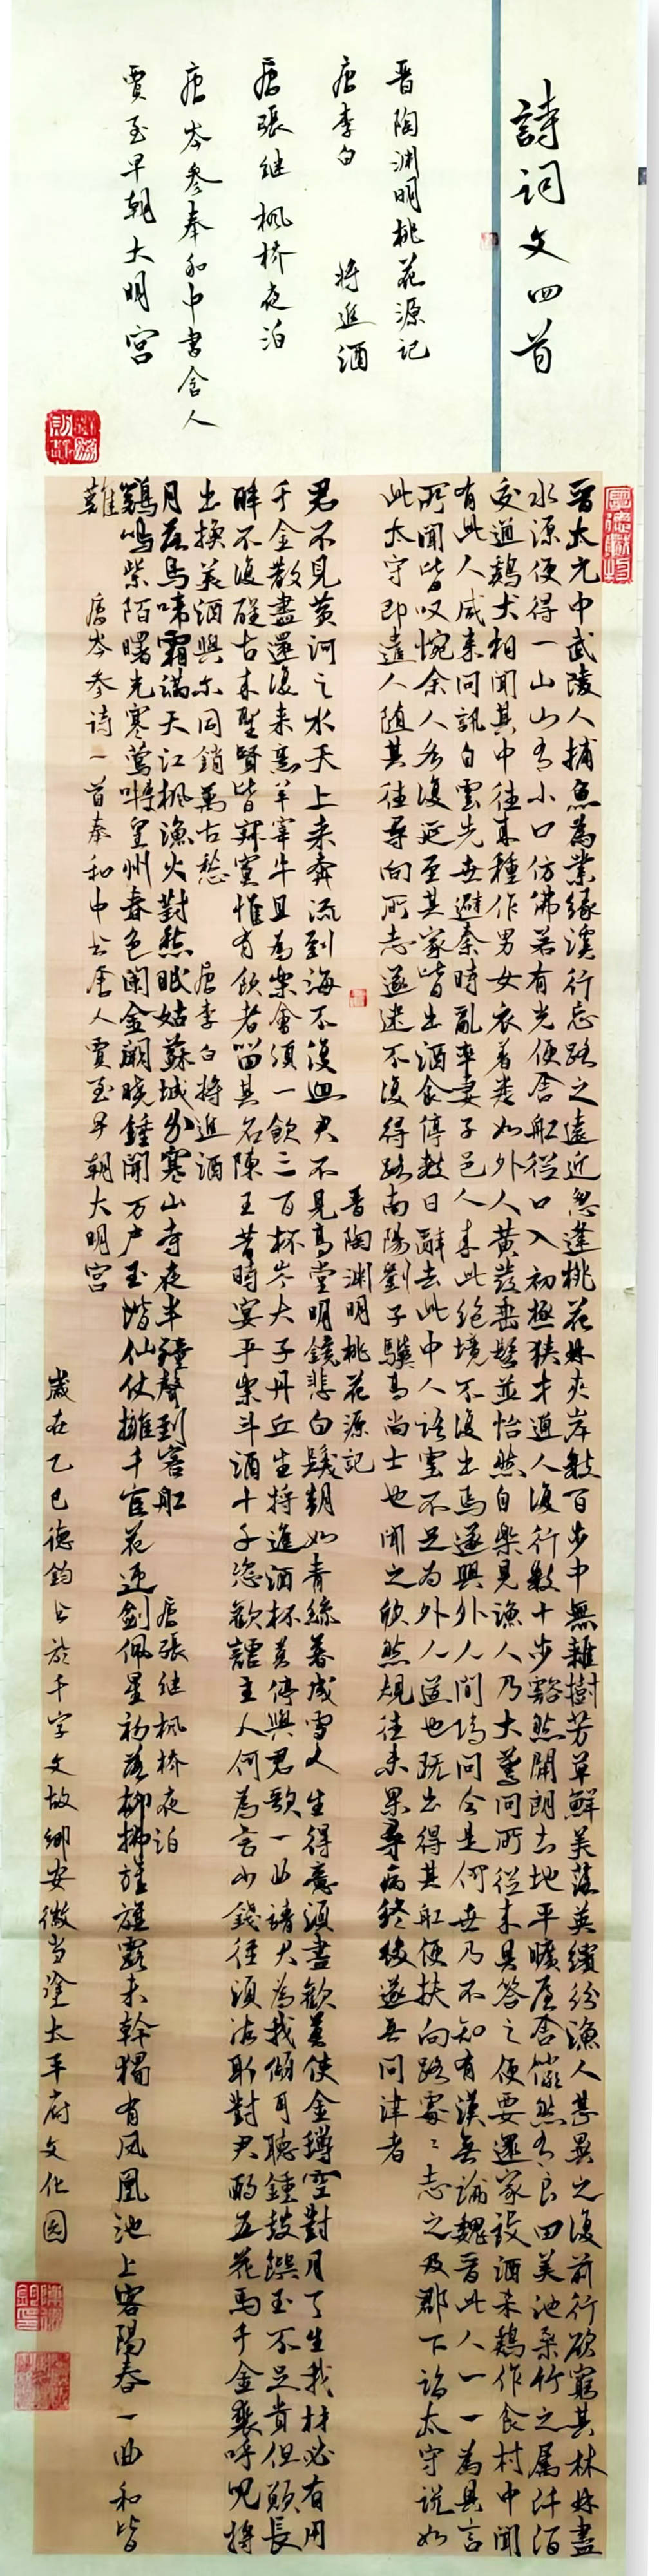 詩词文四首
晋陶渊明桃花源记
唐李白 将进酒
唐张继枫桥夜泊
唐岑参奉和中书舍人
贾至早朝大明宫
晋太元中武陵人捕魚為業缘溪行忘路之遠近忽逢桃花林夹岸數百步中無雜樹芳草鮮美落英缤纷渔人甚異之復前行欲窮其林林盡
水源便得一山山有小口仿佛若有光便舍船從口入初極狹才通人復行數十步豁然開朗土地平曠屋舍儼然有良田美池桑竹之属阡陌
交通鷄犬相聞其中往来種作男女衣着悉如外人黄髮垂髫並怡然自樂見漁人乃大驚问所從来具答之便要還家設酒杀鷄作食村中聞
有此人咸来问訊自雲先世避秦時亂率妻子邑人来此绝境不復出焉遂與外人間隔问今是何世乃不知有漢無論魏晋此人一一為具言
所聞皆叹惋余人各復延至其家皆出酒食停數日辭去此中人語雲不足为外人道也既出得其船便扶向路處處志之及郡下詣太守说如
此太守即遣人随其往尋向所志遂迷不復得路南陽劉子驥高尚士也聞之欣然規往未果尋病終後遂無问津者
晋陶渊明桃花源記
君不見黄河之水天上来奔流到海不復迴君不見高堂明鏡悲白髮朝如青絲暮成雪人生得意須盡歡莫使金罇空對月天生我材必有用
千金散盡還復来烹羊宰牛且為樂會須一飲三百杯岑夫子丹丘生将進酒杯莫停與君歌一曲請君為我傾耳聽鐘鼓饌玉不足貴但願長
醉不復醒古来聖賢皆寂寞惟有飲者留其名陳王昔時宴平樂斗酒十千恣歡謔主人何為言少錢径須沽取對君酌五花馬千金裘呼兒将
出換美酒與尔同銷萬古愁 唐李白将進酒
月落烏啼霜满天江枫渔火對愁眠姑蘇城外寒山寺夜半鐘聲到客船 唐張继枫桥夜泊
鷄鳴紫陌曙光寒鶯囀皇州春色闌金闕曉鐘開万户玉階仙仗擁千官花迎劍佩星初落柳拂旌旗露未幹獨有凤凰池上客陽春一曲和皆
難 唐岑参诗一首奉和中书舍人賈至早朝大明宫
歲在乙巳德鈞书於千字文故鄉安徽当塗太平府文化园